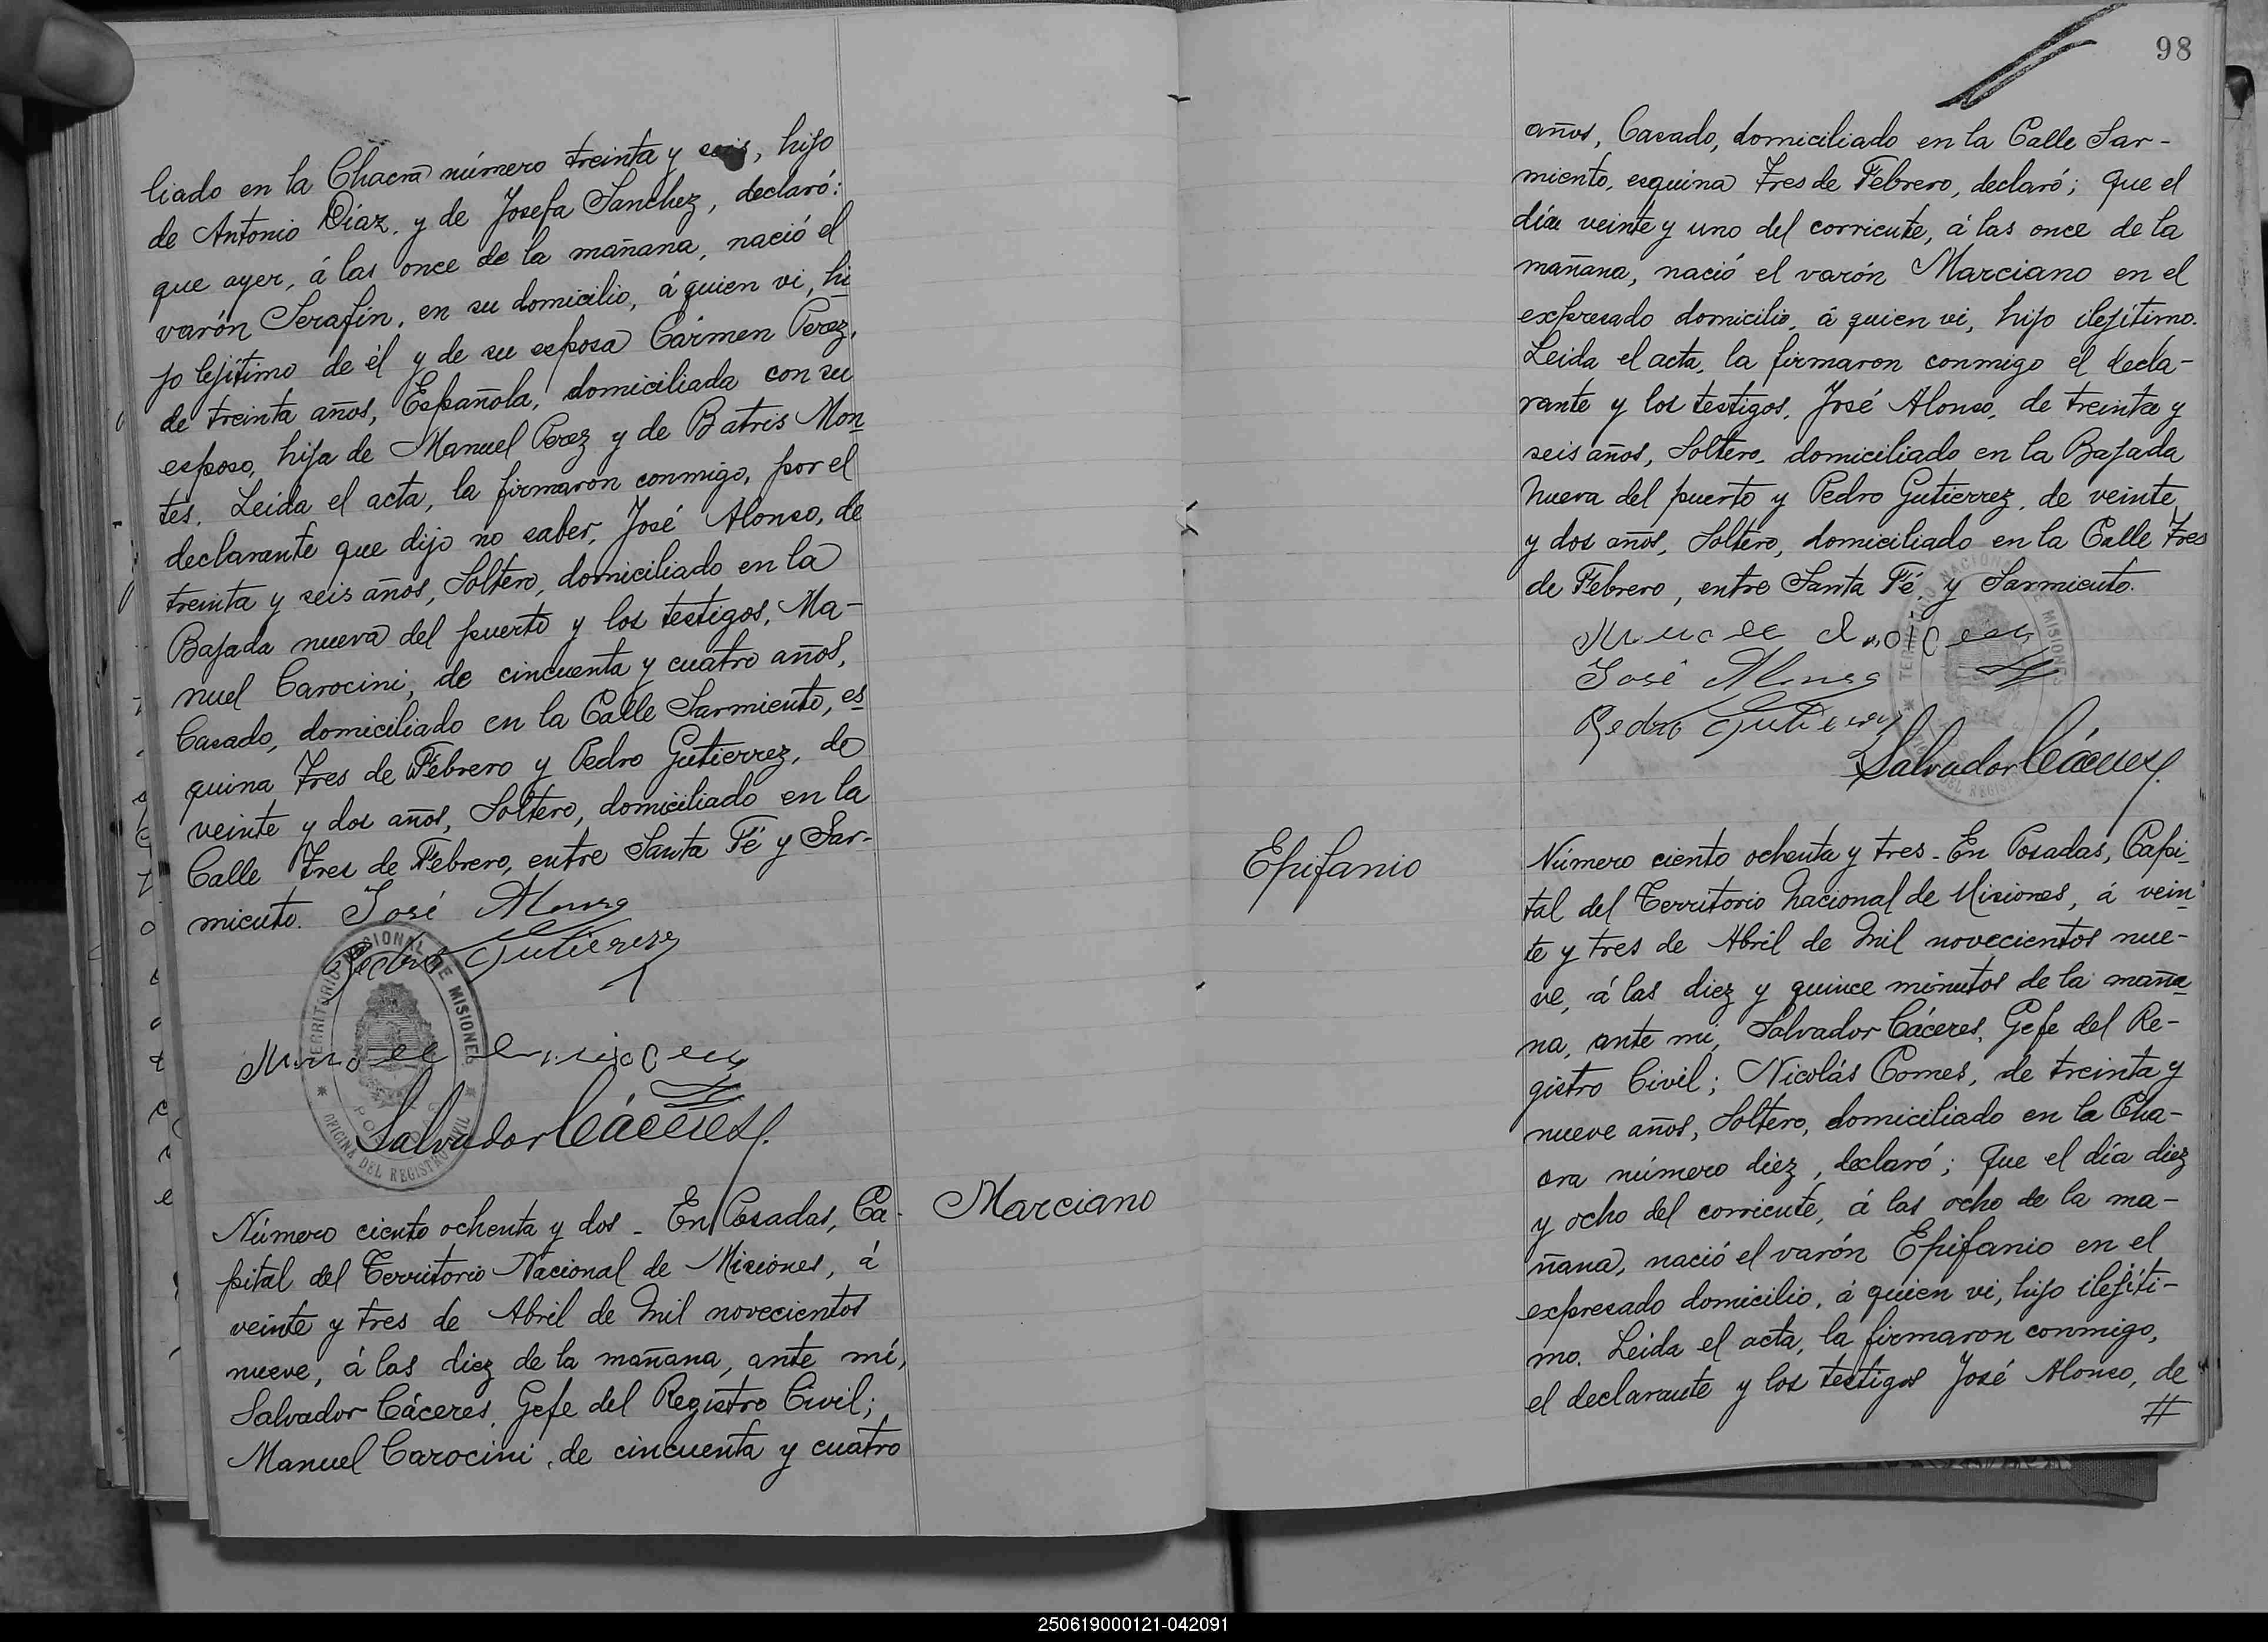 liado en la Chacra número treinta y seis, hijo
de Antonio Díaz, y de Josefa Sanchez, declaró:
que ayer, á las once de la mañana, nació el
varón Serafín, en su domicilio, á quien vi, hi
jo lejítimo de él y de su esposa Cármen Perez,
de treinta años, Española, domiciliada con su
esposo, hija de Manuel Perez y de Batris Mon
tes. Leida el acta, la firmaron conmigo, por el
declarante que dijo no saber, José Alonso, de
treinta y seis años, Soltero, domiciliado en la
Bajada nueva del puerto y los testigos, Ma-
nuel Carocini, de cincuenta y cuatro años,
Casado, domiciliado en la Calle Sarmiento, es
quina Tres de Febrero y Pedro Gutierrez, de
veinte y dos años, Soltero, domiciliado en la
Calle Tres de Febrero, entre Santa Fé y Sar-
miento. José Alonso
Pedro Gutierrez
TERRITORIO NACIONAL DE MISIONES
OFICINA DEL REGISTRO CIVIL
Salvador Cáceres
Marciano
Número ciento ochenta y dos - En Posadas, Ca-
pital del Territorio Nacional de Misiones, á
veinte y tres de Abril de mil novecientos
nueve, á las diez de la mañana, ante mí,
Salvador Cáceres, Gefe del Registro Civil;
Manuel Carocini, de cincuenta y cuatro
98
años, Casado, domiciliado en la Calle Sar-
miento, esquina Tres de Febrero, declaró; que el
día veinte y uno del corriente, á las once de la
mañana, nació el varón Marciano en el
expresado domicilio, á quien vi, hijo ilejítimo.
Leida el acta, la firmaron conmigo el decla-
rante y los testigos, José Alonso, de treinta y
seis años, Soltero, domiciliado en la Bajada
nueva del puerto y Pedro Gutierrez, de veinte
y dos años, Soltero, domiciliado en la Calle Tres
de Febrero, entre Santa Fé, y Sarmiento.
José Alonso
Pedro Gutierrez
Salvador Cáceres
Epifanio
Número ciento ochenta y tres - En Posadas, Capi
tal del Territorio Nacional de Misiones, á vein
te y tres de Abril de mil novecientos nue-
ve, á las diez y quince minutos de la maña
na, ante mi, Salvador Cáceres, Gefe del Re-
gistro Civil; Nicolás Gomes, de treinta y
nueve años, Soltero, domiciliado en la Cha-
cra número diez, declaró; que el día diez
y ocho del corriente, á las ocho de la ma-
ñana, nació el varón Epifanio en el
expresado domicilio, á quien vi, hijo ilejíti-
mo. Leida el acta, la firmaron conmigo,
el declarante y los testigos José Alonso, de
250619000121-042091